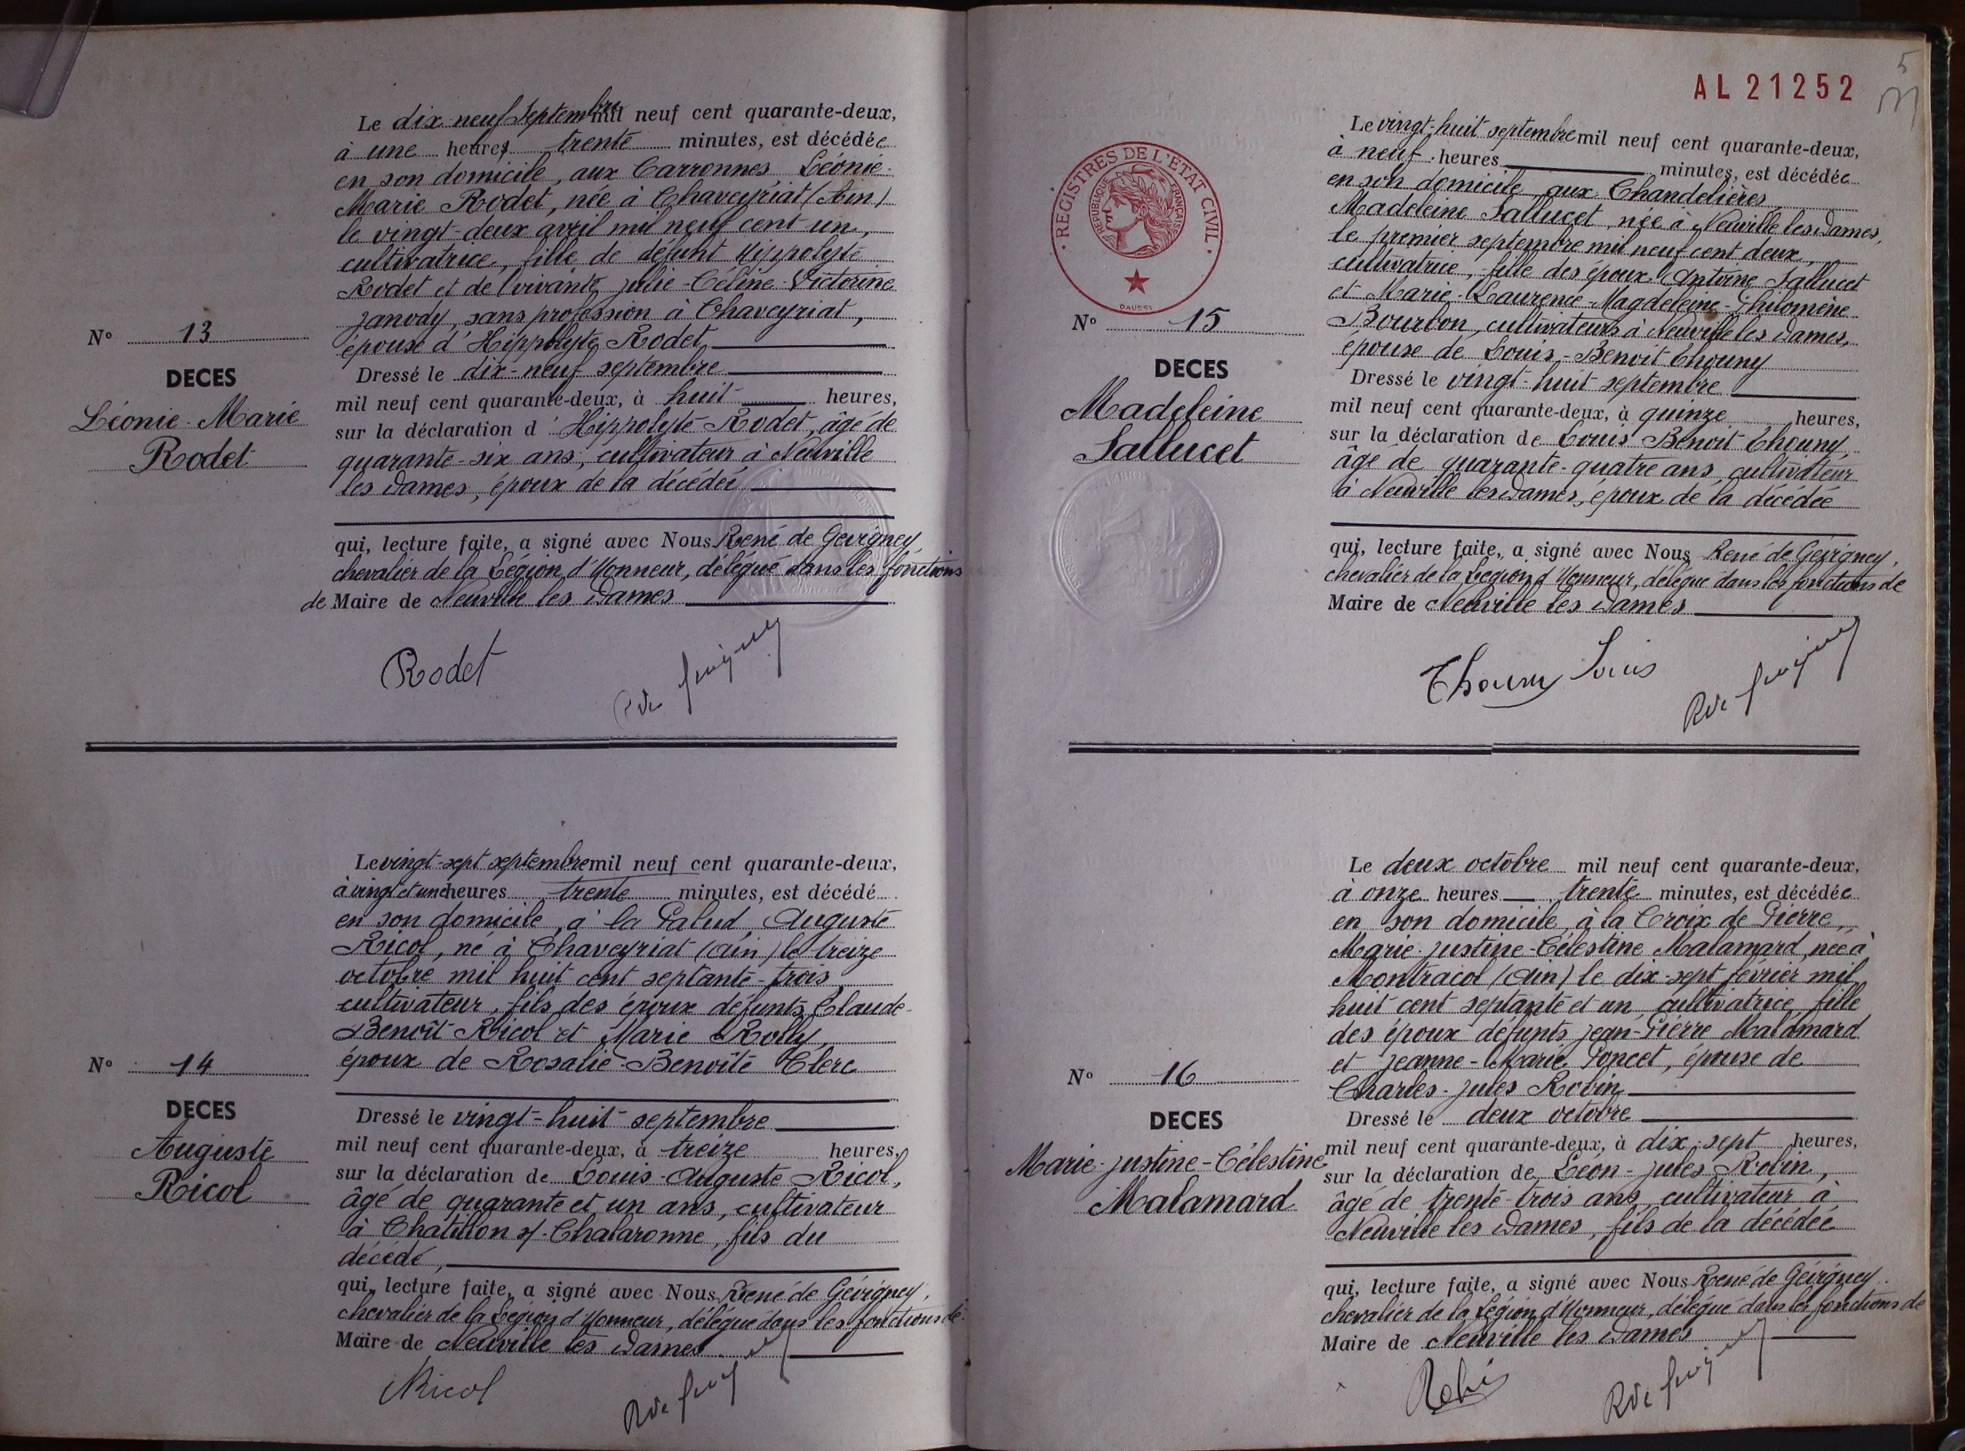 Le dix-neuf Septembre mil neuf cent quarante-deux,
à une heure trente minutes, est décédée
en son domicile, aux Carronnes Léonie-
Marie Rodet, née à Chaveyriat (Ain)
le vingt-deux avril mil neuf cent un,
cultivatrice, fille de défunt Hippolyte
Rodet et de vivante Julie-Céline-Victorine
Janody, sans profession à Chaveyriat,
épouse d'Hippolyte Rodet
N° 13
DECES
Léonie-Marie
Rodet
Dressé le dix-neuf septembre
mil neuf cent quarante-deux, à huit heures,
sur la déclaration d'Hippolyte Rodet, âgé de
quarante-six ans, cultivateur à Neuville
les Dames, époux de la décédée
qui, lecture faite, a signé avec Nous René de Gevigney
chevalier de la Légion d'Honneur, délégué dans les fonctions
de Maire de Neuville les Dames
Rodet
Le vingt-sept septembre mil neuf cent quarante-deux,
à vingt et une heures trente minutes, est décédé
en son domicile, à la Palud, Auguste
Ricol, né à Chaveyriat (Ain) le treize
octobre mil huit cent septante-trois,
cultivateur, fils des époux défunts Claude-
Benoît Ricol et Marie Rolly,
époux de Rosalie-Benoîte Clerc
N° 14
DECES
Auguste
Ricol
Dressé le vingt-huit septembre
mil neuf cent quarante-deux, à treize heures,
sur la déclaration de Louis-Auguste Ricol,
âgé de quarante et un ans, cultivateur
à Chatillon s/. Chalaronne, fils du
décédé,
qui, lecture faite, a signé avec Nous René de Gévigney,
chevalier de la Légion d'Honneur, délégué dans les fonctions de
Maire de Neuville les Dames
Ricol
AL 21252
5
REGISTRES DE L'ETAT CIVIL
REPUBLIQUE FRANÇAISE
Le vingt-huit septembre mil neuf cent quarante-deux,
à neuf heures minutes, est décédée
en son domicile aux Chandelières,
Madeleine Sallucet, née à Neuville les Dames,
le premier septembre mil neuf cent deux,
cultivatrice, fille des époux Antoine Sallucet
et Marie-Laurence-Magdeleine-Philomène
Bourbon, cultivateurs à Neuville les Dames,
épouse de Louis-Benoit Thouny
N° 15
DECES
Madeleine
Sallucet
Dressé le vingt-huit septembre
mil neuf cent quarante-deux, à quinze heures,
sur la déclaration de Louis Benoit Thouny
âgé de quarante-quatre ans, cultivateur
à Neuville les Dames, époux de la décédée
qui, lecture faite, a signé avec Nous René de Gévigney,
chevalier de la Légion d'Honneur, délégué dans les fonctions de
Maire de Neuville les Dames
Thouny Louis
Le deux octobre mil neuf cent quarante-deux,
à onze heures trente minutes, est décédée
en son domicile, à la Croix de Pierre,
Marie-Justine-Célestine Malamard, née à
Montracol (Ain) le dix-sept février mil
huit cent septante et un, cultivatrice, fille
des époux défunts Jean-Pierre Malamard
et Jeanne-Marie Poncet, épouse de
Charles-Jules Robin
N° 16
DECES
Marie-Justine-Célestine
Malamard
Dressé le deux octobre
mil neuf cent quarante-deux, à dix-sept heures,
sur la déclaration de Léon-Jules Robin,
âgé de trente-trois ans, cultivateur à
Neuville les Dames, fils de la décédée
qui, lecture faite, a signé avec Nous René de Gévigney
chevalier de la Légion d'Honneur, délégué dans les fonctions de
Maire de Neuville les Dames
Robin